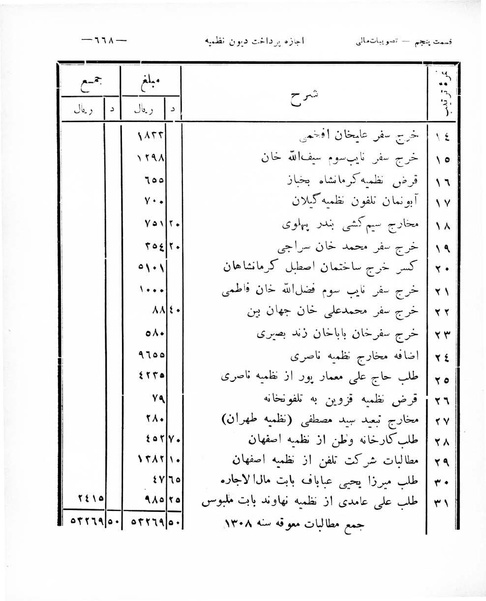 قسمت پنجم — تصویبات مالی اجازه پرداخت دیون نظمیه —۶۶۸—
نمره ترتیب شرح مبلغ جمع
د ریال د ریال
۱٤ خرج سفر علیخان افخمی ۱۸۲۲
۱٥ خرج سفر نایب سوم سیف‌الله خان ۱۲۹۸
۱٦ قرض نظمیه کرمانشاه بخباز ٦٥٥
۱۷ آبونمان تلفون نظمیه گیلان ۷۰۰
۱۸ مخارج سیم‌کشی بندر پهلوی ۲۰ ۷٥۱
۱۹ خرج سفر محمد خان سراجی ۲۰ ۲٥٤
۲۰ کسر خرج ساختمان اصطبل کرمانشاهان ٥۱۰۱
۲۱ خرج سفر نایب سوم فضل‌الله خان فاطمی ۱۰۰۰
۲۲ خرج سفر محمدعلی خان جهان بین ٤۰ ۸۸
۲۳ خرج سفرخان باباخان زند بصیری ٥۸۰
۲٤ اضافه مخارج نظمیه ناصری ۹٦٥٥
۲٥ طلب حاج علی معمار پور از نظمیه ناصری ٤۲۳٥
۲٦ قرض نظمیه قزوین به تلفونخانه ۷۹
۲۷ مخارج تبعید سید مصطفی (نظمیه طهران) ۲۸۰
۲۸ طلب کارخانه وطن از نظمیه اصفهان ۷۰ ٤٥۲
۲۹ مطالبات شرکت تلفن از نظمیه اصفهان ۱۰ ۱۳۸۲
۳۰ طلب میرزا یحیی عباباف بابت مال‌الاجاره ٦٥ ٤۷
۳۱ طلب علی عامدی از نظمیه نهاوند بابت ملبوس ۲٥ ۹۸٥ ۲٤۱٥
جمع مطالبات معوقه سنه ۱۳۰۸ ٥۰ ٥۳۲٦۹ ٥۰ ٥۳۲٦۹